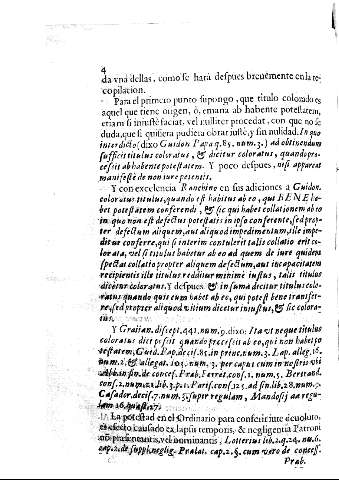 4
da vna dellas, como se hará despues breuemente en la re-
copilacion.
Para el primero punto supongo, que titulo colorado es
aquel que tiene origen, ò emana ab habente potestatem,
etiam si iniustè faciat, vel nulliter procedat, con que no se
duda, que si quisiera pudiera obrar iustè, y sin nulidad. In quo
interdicto (dixo Guidon Papa q. 85. num. 3.) ad obtinendum
sufficit titulus coloratus, & dicitur coloratus, quando pro-
cessit ab habente potestatem. Y poco despues, nisi appareat
manifestè de non iure petentis.
Y con excelencia Ranchino en sus adiciones a Guidon.
coloratus titulus, quando est habitus ab eo, qui BENE ha-
bet potestatem conferendi, & sic qui habet collationem ab eo
in quo non est defectus potestatis in ipso conferente, sed prop-
ter defectum alicuem, aut aliquod impedimentum, ille impe-
ditur conferre, qui si interim contulerit talis collatio erit co-
lorata, vel si titulus habetur ab eo ad quem de iure quidem
spectat collatio propter aliquem defectum, aut incapacitatem
recipientis ille titulus redditur minime iustus, talis titulus
dicitur coloratus. Y despues. & in summa dicitur titulus colo-
ratus quando quis eum habet ab eo, qui potest bene transfer-
re, sed propter aliquod vitium dicitur iniustus, & sic colora-
tus.
Y Gratian. discept. 441. num. 9. dixo: Ita vt neque titulus
coloratus dici possit quando est ab eo, qui non habet po-
testatem, Guid. Pap. decis. 85. in princ. num. 3. Lap. alleg. 16.
num. 2, & allegat. 103. num. per captus cum in nostris vi-
ad hb. in fin. de concess. Prab. Ferret. cons. 1. num. 5, Bertrand.
cons. 2. num. 22. lib. 3. p. 1. Paris. cons. 125. ad fin. lib. 28. num. 9.
Casador. decis. 7. num. 5. super regulam, Mandosij ad regu-
lam 26. quæst. 27.
La potestad en el Ordinario para conferir iure deuoluto,
es efecto causado ex lapsu temporis, & negligentia Patroni
non præsentantis, vel nominantis, Lotterius lib. 2. q. 24. num. 6.
cap. 2. de suppl. neglig. Prælat. cap. 2. §. cum vero de concess.
Prab.